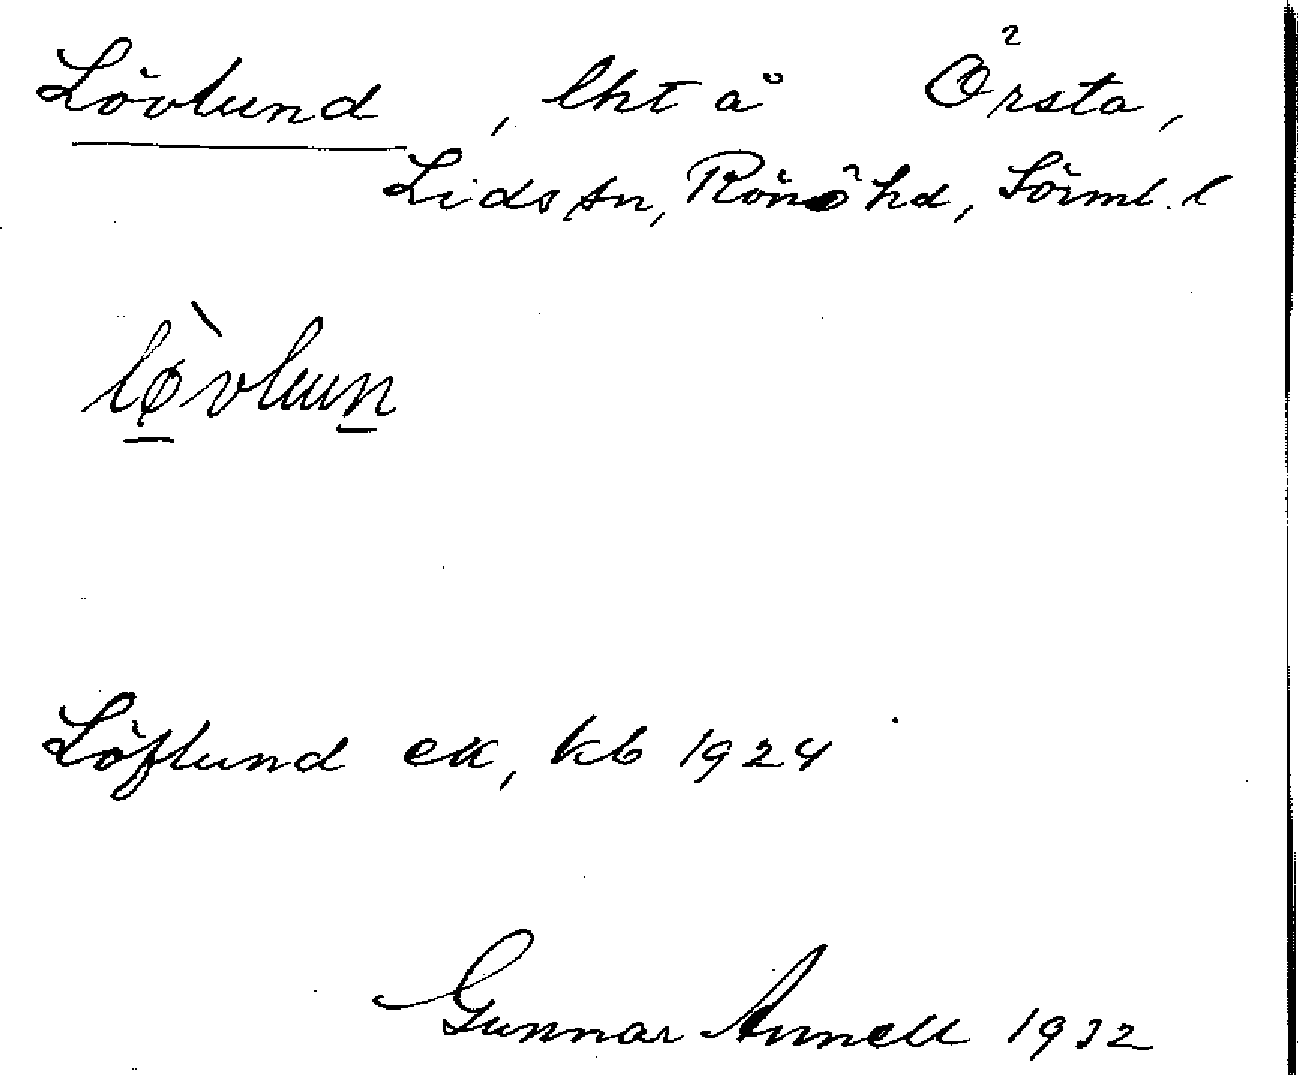 Lövlund, lht å Örsta,
Lids sn, Rönö hd, Sörml. l
Löflund ek, kb 1924
Gunnar Annell 1932